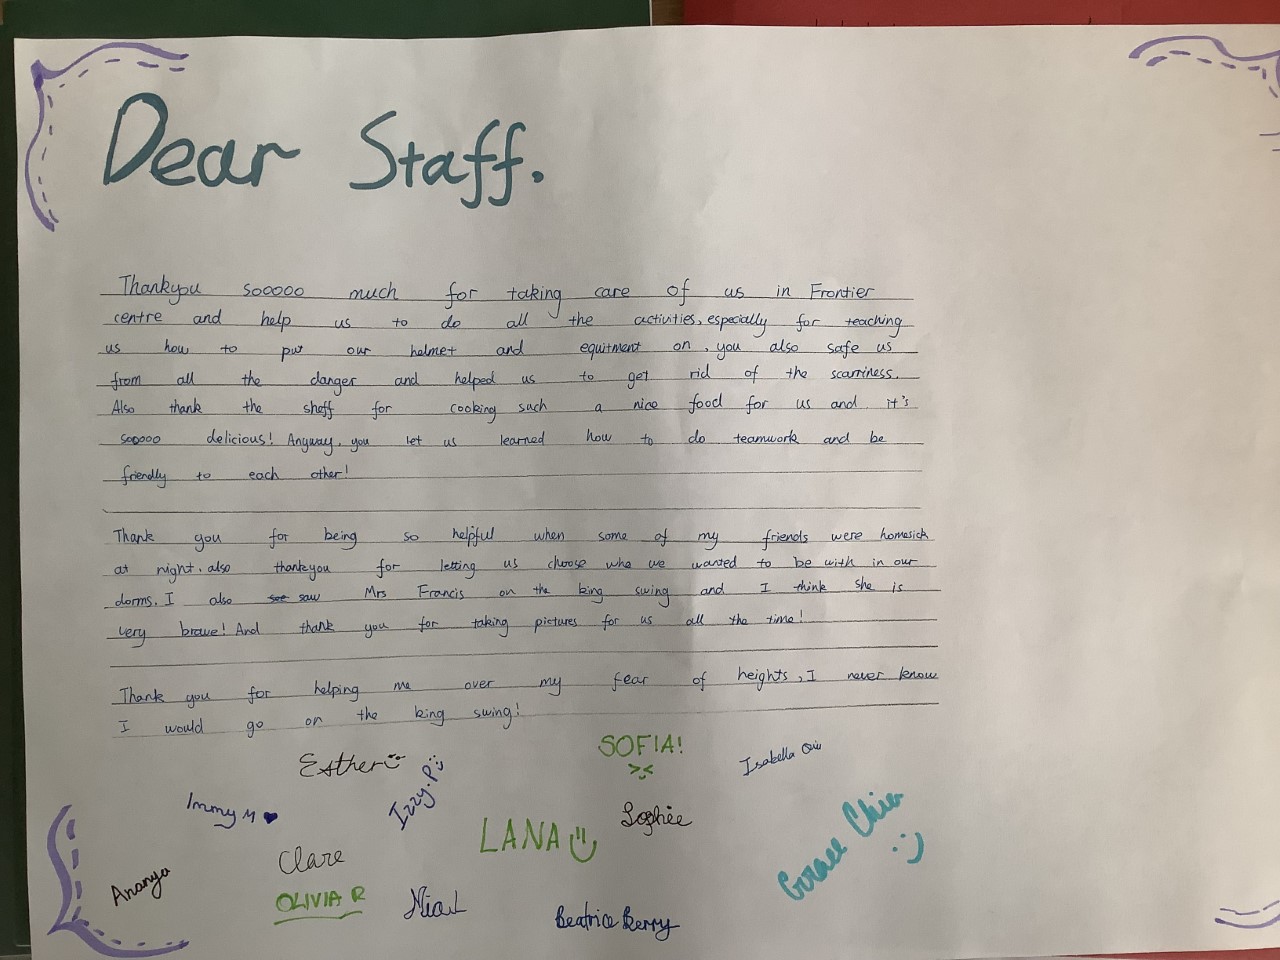 Dear Staff.
Thankyou sooooo much for taking care of us in Frontier
centre and help us to do all the activities, especially for teaching
us how to put our helmet and equitment on, you also safe us
from all the danger and helped us to get rid of the scarriness.
Also thank the sheff for cooking such a nice food for us and, it's
sooooo delicious! Anyway, you let us learned how to do teamwork and be
friendly to each other!
Thank you for being so helpful when some of my friends were homesick
at night, also thankyou for letting us choose who we wanted to be with in our
dorms. I also see saw Mrs Francis on the king swing and I think she is
very brave! And thank you for taking pictures for us all the time!
Thank you for helping me over my fear of heights, I never know
I would go on the king swing!
Esther
SOFIA!
Isabella
Immy M
Izzy.P
Sophie
LANA
Grace Chien
Clare
Ananya
OLIVIA R
Nia.L
Beatrice Berry